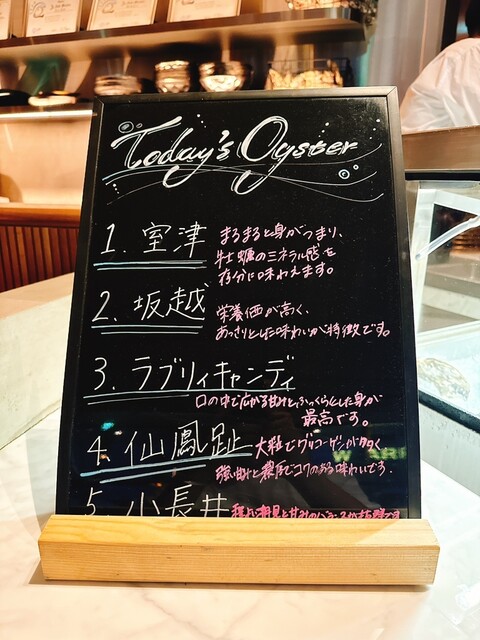 Today's Oyster
1. 室津 まるまると身がつまり、
牡蠣のミネラル感を
存分に味わえます。
2. 坂越 栄養価が高く、
あっさりとした味わいが特徴です。
3. ラブリィキャンディ
口の中で広がる甘みとふっくらとした身が
最高です。
4. 仙鳳趾 大粒でグリコーゲンが多く
強い甘みと濃厚でコクのある味わいです.
5. 小長井